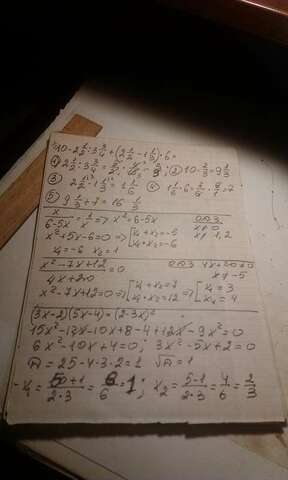 10-2½:3¾+(2½-1⅓)·6=
① 2½:3¾= ② 10-⅔=9⅓
③ 2½-1⅓=1⅙ ④ 1⅙·6=7/6·6/1=7
⑤ 9⅓+7=16⅓
x/(6-5x)=1/x => x²=6-5x ОДЗ
x²+5x-6=0 => [x₁+x₂=-5 x₁·x₂=-6
x₁=-6 x₂=1
(x²-7x+12)/(4x+20)=0 ОДЗ 4x+20≠0
x≠-5
x²-7x+12=0 => [x₁+x₂=7 x₁·x₂=12 => [x₁=3 x₂=4
(3x-2)(5x-4)=(2-3x)²
15x²-12x-10x+8-4+12x-9x²=0
6x²-10x+4=0; 3x²-5x+2=0
D=25-4·3·2=1 √D=1
x₁=(5+1)/(2·3)=6/6=1; x₂=(5-1)/(2·3)=4/6=2/3